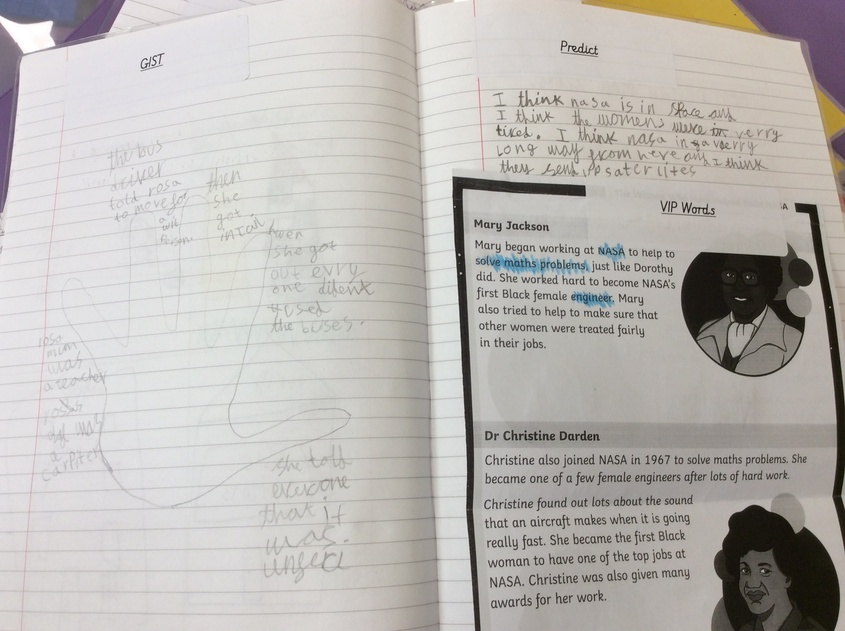 GIST
the bus
driver
told rosa
to move for
a
wit
Person
then
she
got
in
then
she got
out evry
one
used
the buses.
rosa
mum
was
a
was
a
she told
everone
that it
was.
Predict
I think nasa is in space and
I think the womens were in verry
tired. I think nasa in a verry
long way from here and I think
they send up
VIP Words
A
Mary Jackson
Mary began working at NASA to help to
solve maths problems, just like Dorothy
did. She worked hard to become NASA's
first Black female engineer. Mary
also tried to help to make sure that
other women were treated fairly
in their jobs.
Dr Christine Darden
Christine also joined NASA in 1967 to solve maths problems. She
became one of a few female engineers after lots of hard work.
Christine found out lots about the sound
that an aircraft makes when it is going
really fast. She became the first Black
woman to have one of the top jobs at
NASA. Christine was also given many
awards for her work.